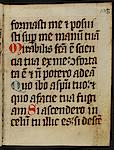 formasti me et posui
sti sup me manū tuā
Mirabilis facta ē scien
cia tua ex me: confortata
ta ē et nō potero ad eā
Quo ibo a spū tuo: et
quo a facie tua fugi
am Si ascendero in
celū tu illic es: si descē